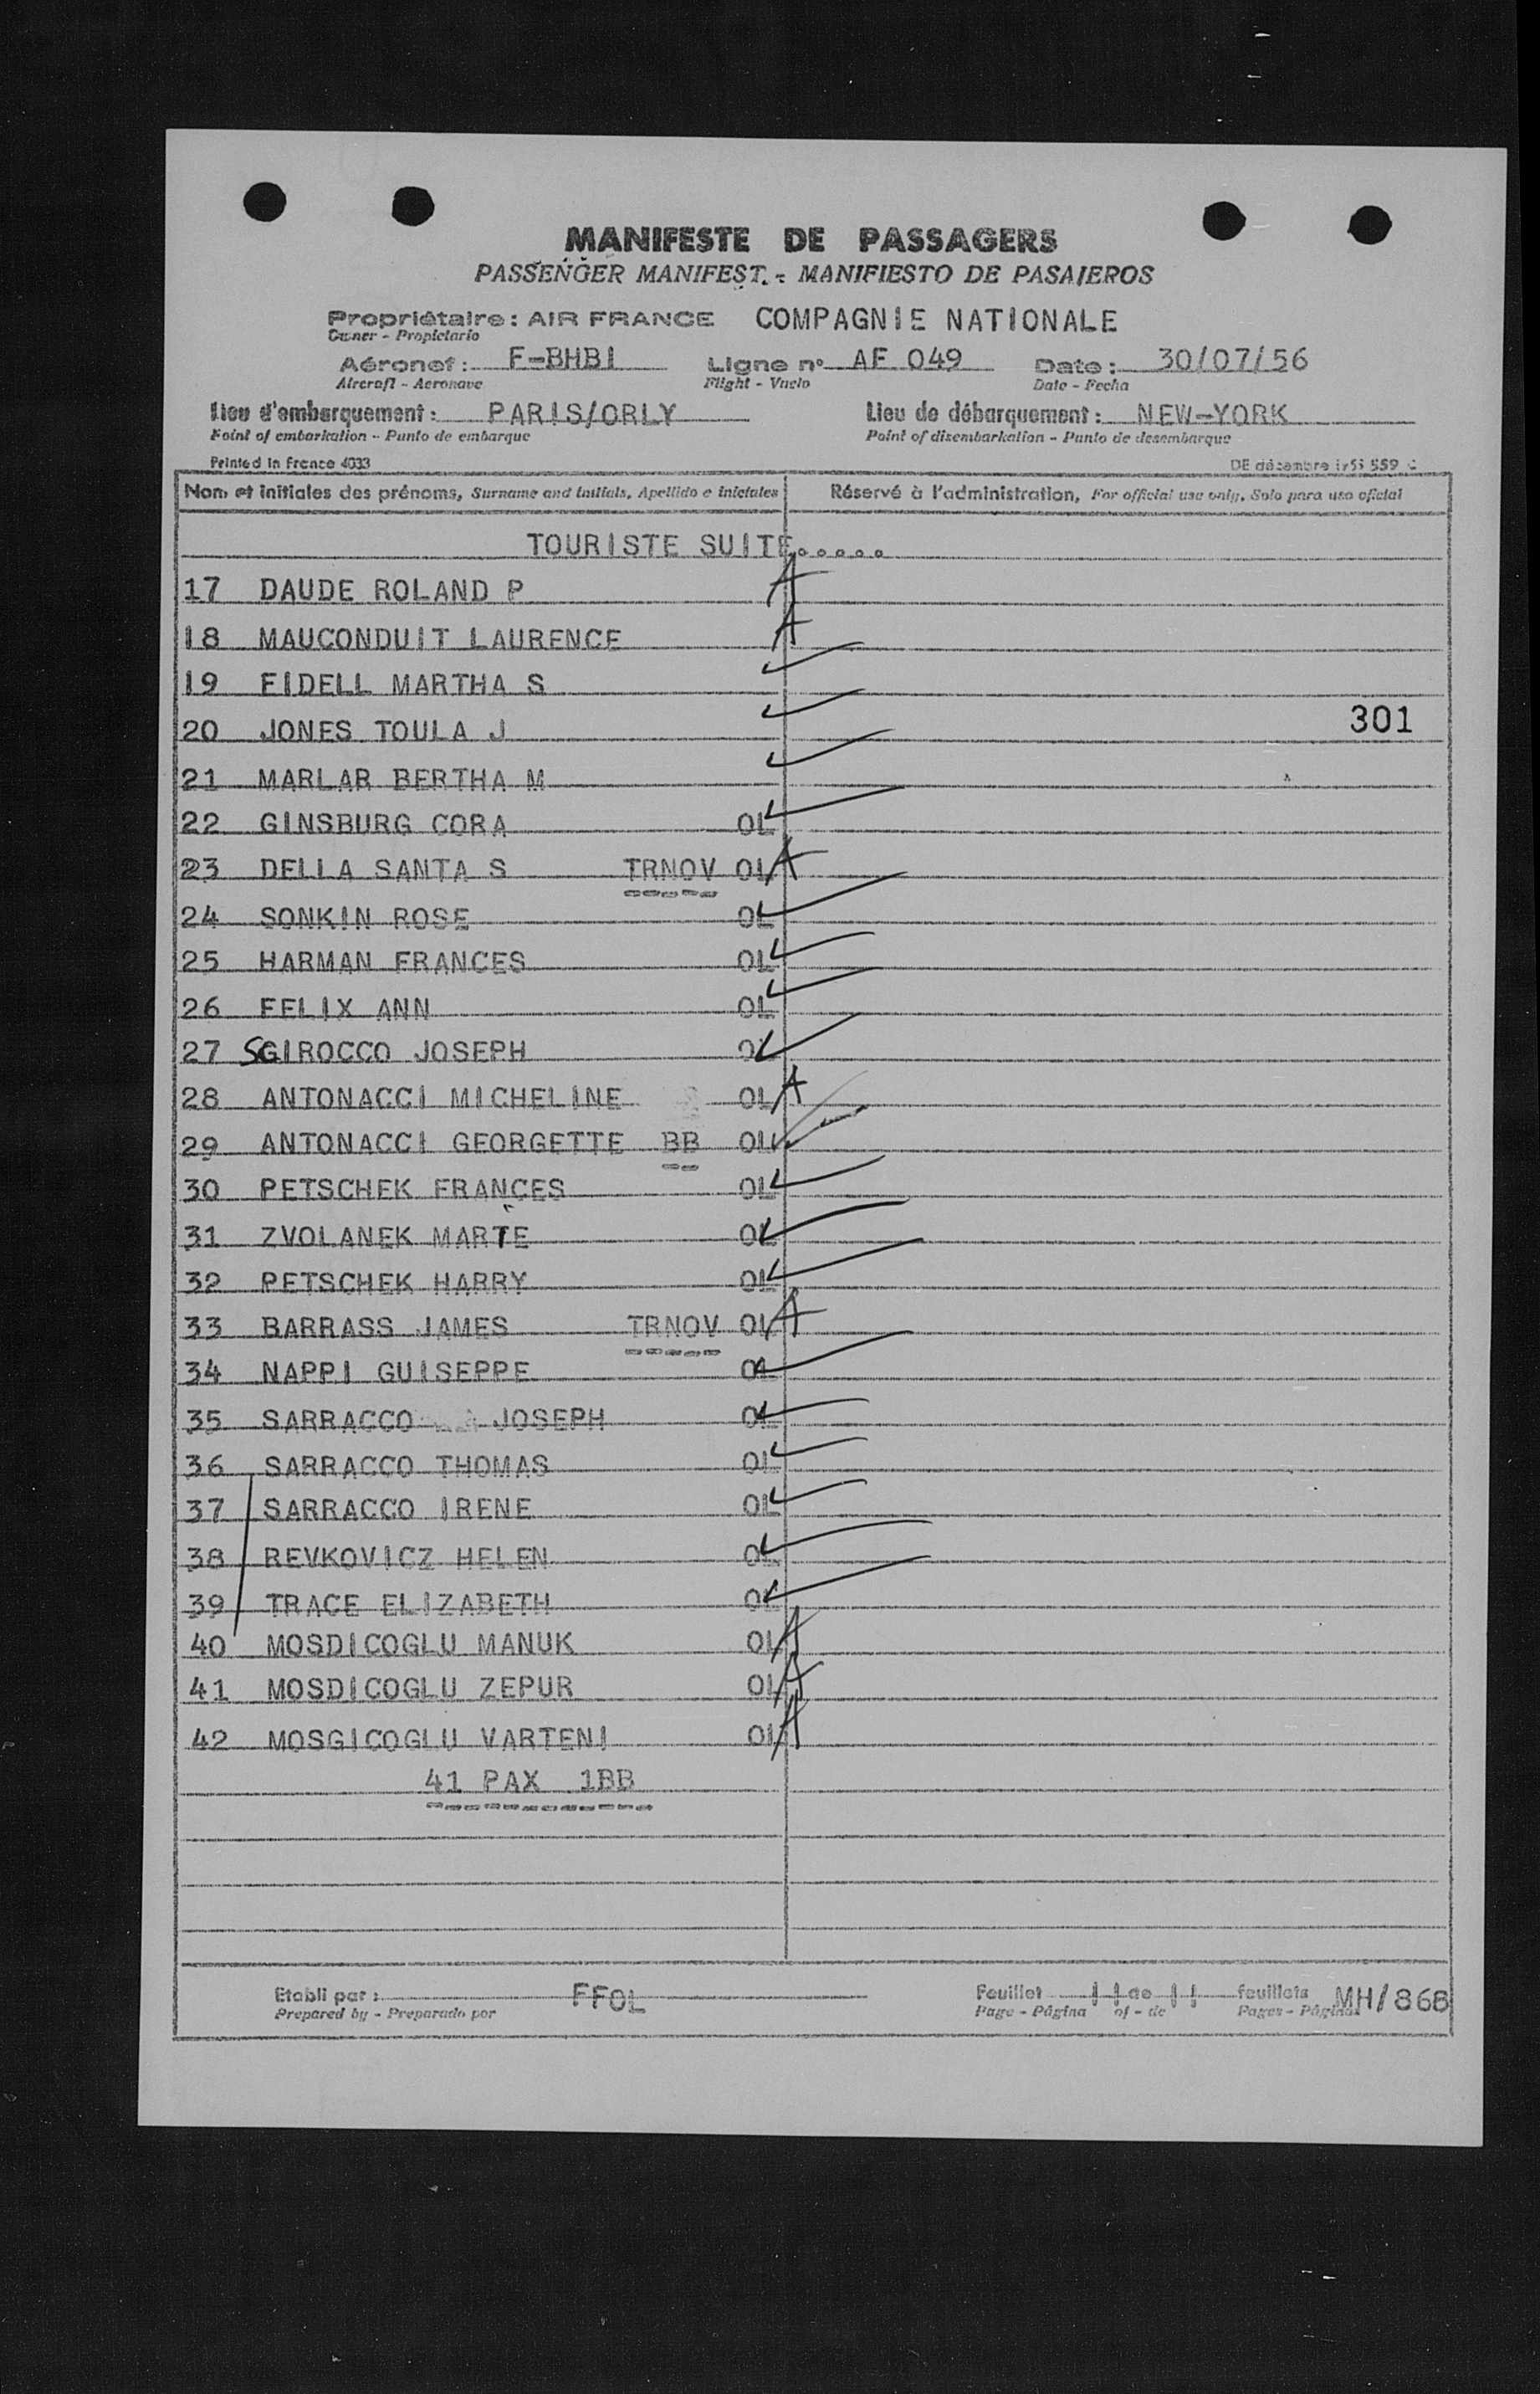 MANIFESTE DE PASSAGERS
PASSENGER MANIFEST. - MANIFIESTO DE PASAJEROS
Propriétaire : AIR FRANCE COMPAGNIE NATIONALE
Owner - Propietario
Aéronef : F-BHBI Ligne n° AF 049 Date : 30/07/56
Aircraft - Aeronave Flight - Vuelo Date - Fecha
Lieu d'embarquement : PARIS/ORLY Lieu de débarquement : NEW-YORK
Point of embarkation - Punto de embarque Point of disembarkation - Punto de desembarque
Printed in France 4033 DE décembre 1955 559 C
Nom et initiales des prénoms, Surname and initials, Apellido e iniciales Réservé à l'administration, For official use only, Solo para uso oficial
TOURISTE SUITE.....
17 DAUDE ROLAND P A
18 MAUCONDUIT LAURENCE A
19 FIDELL MARTHA S
20 JONES TOULA J 301
21 MARLAR BERTHA M
22 GINSBURG CORA OL
23 DELLA SANTA S TRNOV OL A
24 SONKIN ROSE OL
25 HARMAN FRANCES OL
26 FELIX ANN OL
27 SGIROCCO JOSEPH OL
28 ANTONACCI MICHELINE OL A
29 ANTONACCI GEORGETTE BB OL
30 PETSCHEK FRANCES OL
31 ZVOLANEK MARIE OL
32 PETSCHEK HARRY OL
33 BARRASS JAMES TRNOV OL A
34 NAPPI GUISEPPE OL
35 SARRACCO JOSEPH OL
36 SARRACCO THOMAS OL
37 SARRACCO IRENE OL
38 REVKOVICZ HELEN OL
39 TRACE ELIZABETH OL
40 MOSDICOGLU MANUK OL A
41 MOSDICOGLU ZEPUR OL A
42 MOSGICOGLU VARTENI OL A
41 PAX 1BB
Etabli par : FFOL Feuillet 11 de 11 feuillets MH/868
Prepared by - Preparado por Page - Página of - de Pages - Páginas